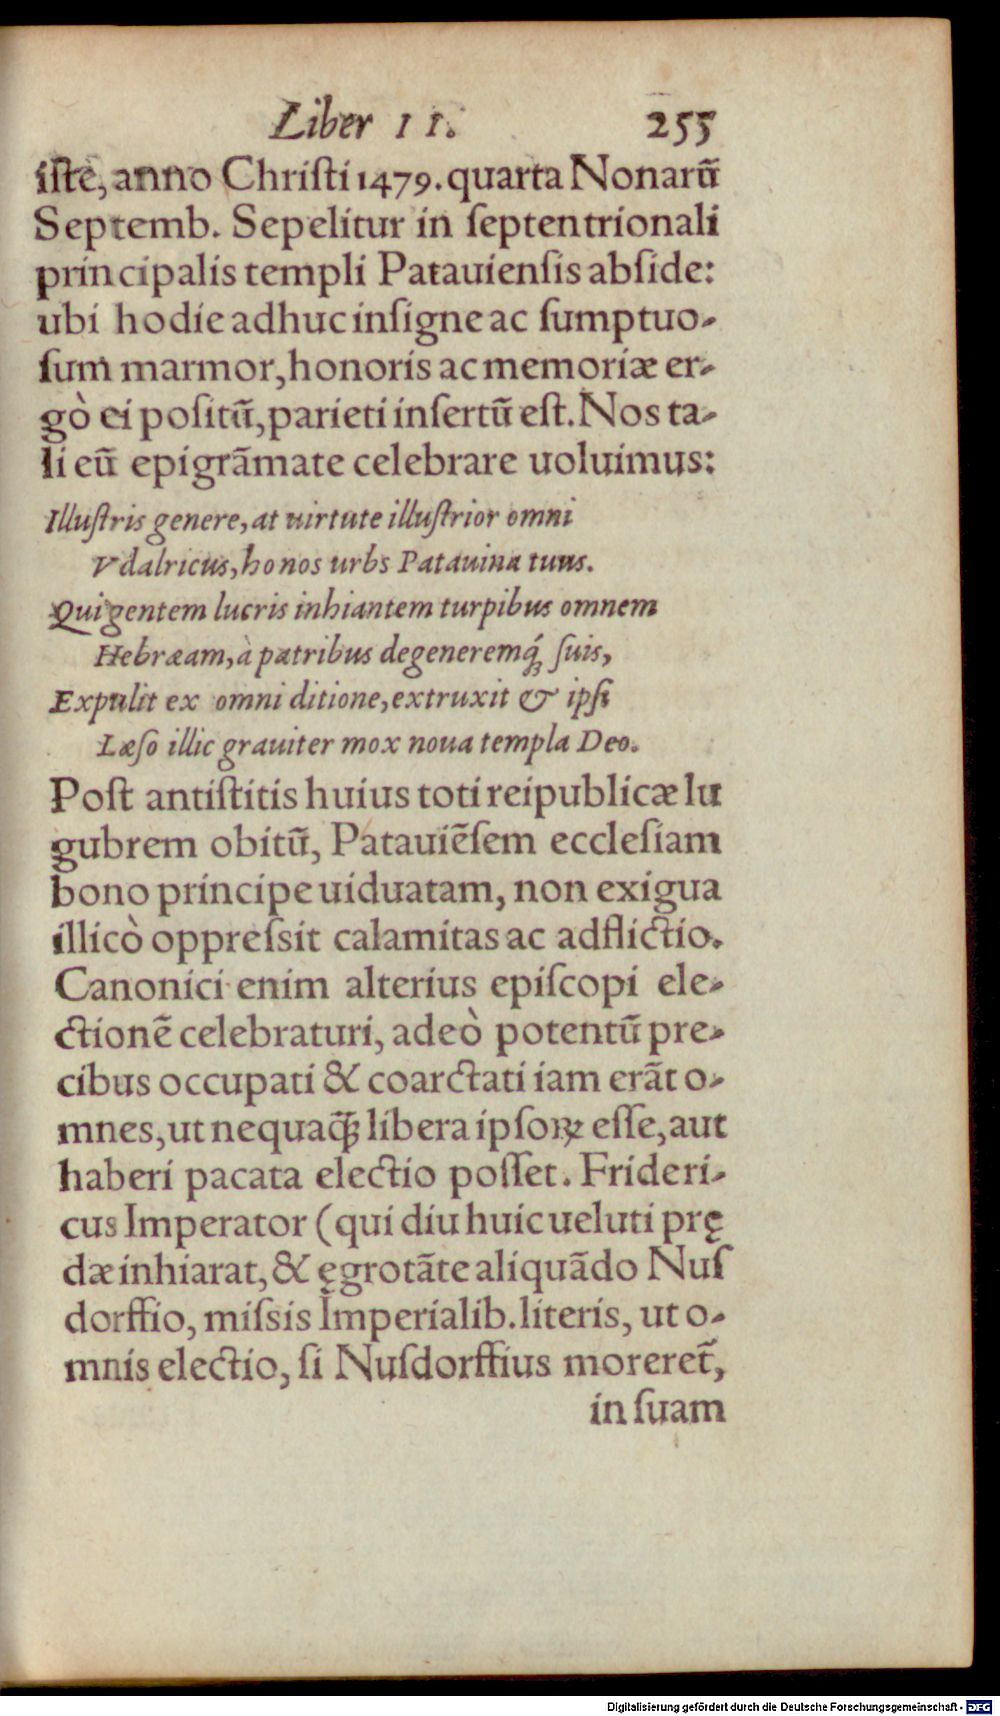 Liber II. 255
iſte, anno Chriſti 1479. quarta Nonarū
Septemb. Sepelitur in ſeptentrionali
principalis templi Patauienſis abſide:
ubi hodie adhuc inſigne ac ſumptuo-
ſum marmor, honoris ac memoriæ er-
gò ei poſitū, parieti inſertū eſt. Nos ta-
li eū epigrāmate celebrare uoluimus:
Illuſtris genere, at uirtute illuſtrior omni
Vdalricus, honos urbs Patauina tuus.
Qui gentem lucris inhiantem turpibus omnem
Hebræam, à patribus degeneremq́ꝫ ſuis,
Expulit ex omni ditione, extruxit & ipſi
Læſo illic grauiter mox noua templa Deo.
Poſt antiſtitis huius toti reipublicæ lu
gubrem obitū, Patauiẽſem eccleſiam
bono principe uiduatam, non exigua
illicò oppreſsit calamitas ac adflictio.
Canonici enim alterius epiſcopi ele-
ctionẽ celebraturi, adeò potentū pre-
cibus occupati & coarctati iam erāt o-
mnes, ut nequaq̃ꝫ libera ipſoꝝ eſſe, aut
haberi pacata electio poſſet. Frideri-
cus Imperator (qui diu huic ueluti prę
dæ inhiarat, & ęgrotāte aliquādo Nuſ
dorffio, miſsis Imperialib. literis, ut o-
mnis electio, ſi Nuſdorffius moreret̃,
in ſuam
Digitalisierung gefördert durch die Deutsche Forschungsgemeinschaft - DFG